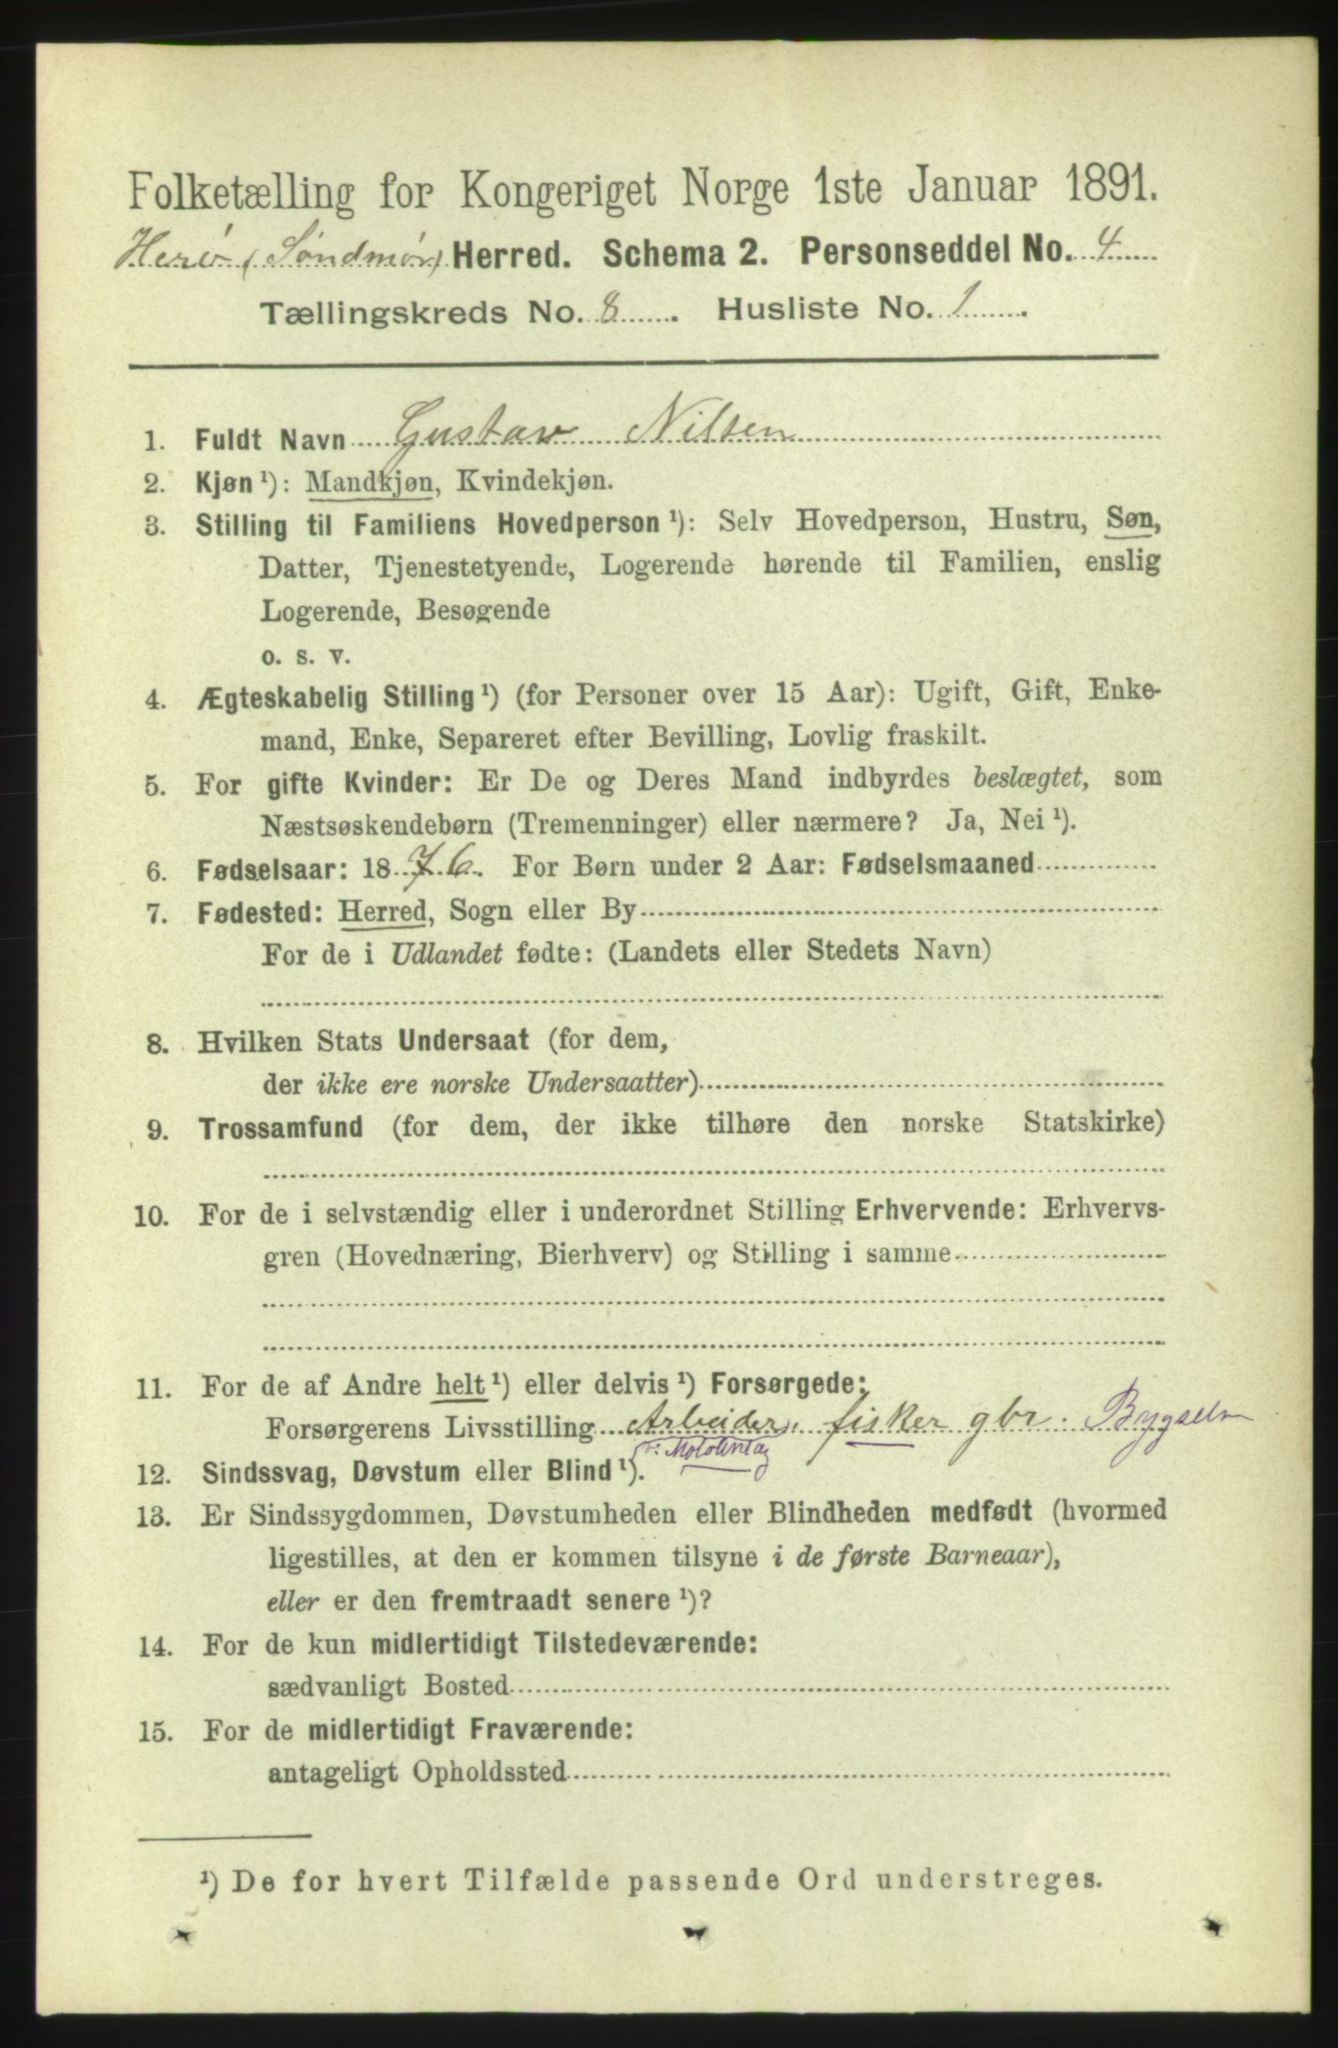 Folketælling for Kongeriget Norge 1ste Januar 1891.
Herø (Søndmør) Herred. Schema 2. Personseddel No. 4
Tællingskreds No. 8. Husliste No. 1.
1. Fuldt Navn Gustav Nilsen
2. Kjøn ¹): Mandkjøn, Kvindekjøn.
3. Stilling til Familiens Hovedperson ¹): Selv Hovedperson, Hustru, Søn,
Datter, Tjenestetyende, Logerende hørende til Familien, enslig
Logerende, Besøgende
o. s. v.
4. Ægteskabelig Stilling ¹) (for Personer over 15 Aar): Ugift, Gift, Enke-
mand, Enke, Separeret efter Bevilling, Lovlig fraskilt.
5. For gifte Kvinder: Er De og Deres Mand indbyrdes beslægtet, som
Næstsøskendebørn (Tremenninger) eller nærmere? Ja, Nei ¹).
6. Fødselsaar: 1876. For Børn under 2 Aar: Fødselsmaaned
7. Fødested: Herred, Sogn eller By
For de i Udlandet fødte: (Landets eller Stedets Navn)
8. Hvilken Stats Undersaat (for dem,
der ikke ere norske Undersaatter)
9. Trossamfund (for dem, der ikke tilhøre den norske Statskirke)
10. For de i selvstændig eller i underordnet Stilling Erhvervende: Erhvervs-
gren (Hovednæring, Bierhverv) og Stilling i samme
11. For de af Andre helt ¹) eller delvis ¹) Forsørgede:
Forsørgerens Livsstilling Arbeider, fisker gbr.
12. Sindssvag, Døvstum eller Blind ¹).
13. Er Sindssygdommen, Døvstumheden eller Blindheden medfødt (hvormed
ligestilles, at den er kommen tilsyne i de første Barneaar),
eller er den fremtraadt senere ¹)?
14. For de kun midlertidigt Tilstedeværende:
sædvanligt Bosted
15. For de midlertidigt Fraværende:
antageligt Opholdssted
¹) De for hvert Tilfælde passende Ord understreges.